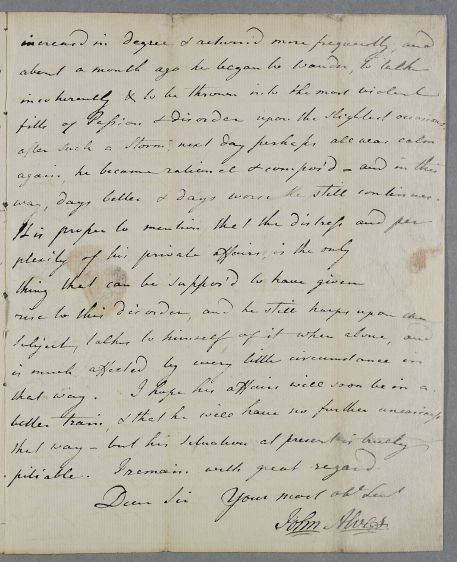 increased in degree & return'd more frequently, and
about a month ago he began to wander, to talk
incoherently & to be thrown into the most violent
fitts of Passion & disorder upon the slightest occasions,
after such a Storm, next day perhaps all was calm
again, he became rational & compos'd – and in this
way, days better & days worse he still continues.
It is proper to mention that the distress and per
plexity of his private affairs, is the only
thing that can be suppos'd to have given
rise to this disorder, and he still harps upon the
subject, talks to himself of it when alone, and
is much affected by every little circumstance in
that way. I hope his affairs will soon be in a
better train, & that he will have no further uneasiness
that way – but his situation at present is truely
pitiable. I remain with great regard
Dear Sir Your most obt Servt
John Alves